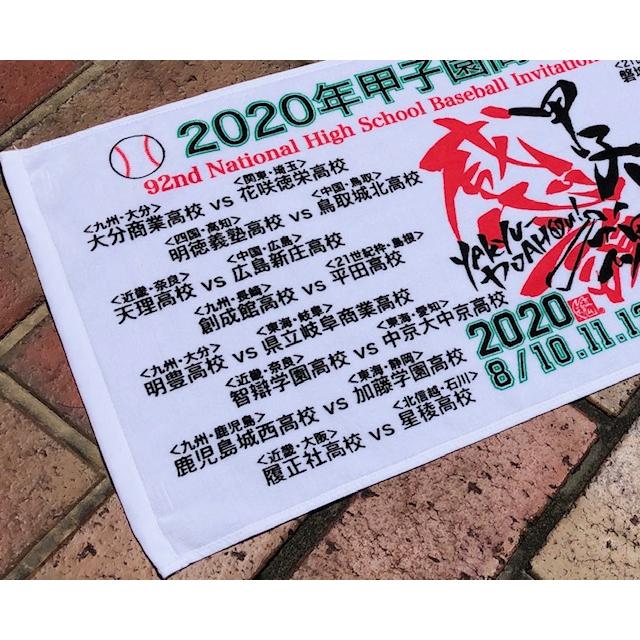 2020年甲子園高
92nd National High School Baseball Invitation
<九州・大分> <関東・埼玉>
大分商業高校 VS 花咲徳栄高校
<四国・高知> <中国・鳥取>
明徳義塾高校 VS 鳥取城北高校
<近畿・奈良> <中国・広島>
天理高校 VS 広島新庄高校
<九州・長崎> <21世紀枠・島根>
創成館高校 VS 平田高校
<九州・大分> <東海・岐阜>
明豊高校 VS 県立岐阜商業高校
<近畿・奈良> <東海・愛知>
智辯学園高校 VS 中京大中京高校
<九州・鹿児島> <東海・静岡>
鹿児島城西高校 VS 加藤学園高校
<近畿・大阪> <北信越・石川>
履正社高校 VS 星稜高校
甲子
YAKYU-
2020
8/10.11.12